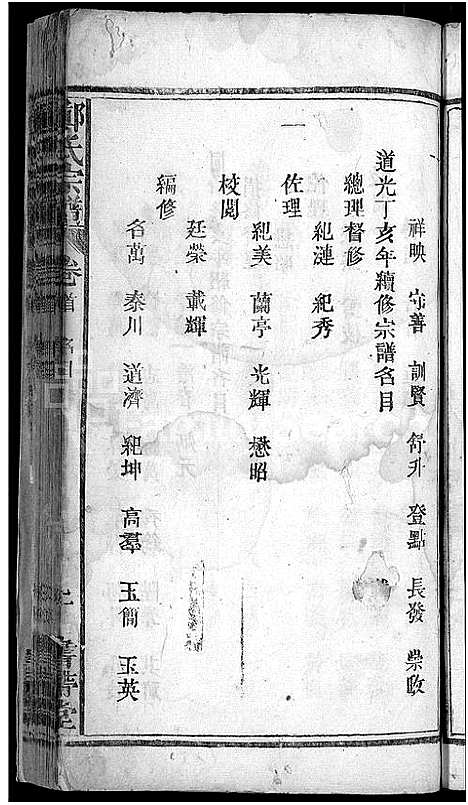 祥映 守善 訓賢 舒升 登點 長發 崇政
道光丁亥年續修宗譜名目
總理督修
紀漣 紀秀
佐理
紀美 蘭亭 光輝 懋昭
校閱
廷榮 載輝
編修
名萬 泰川 道濟 紀坤 高羣 玉簡 玉英
氏宗譜 卷首 名目